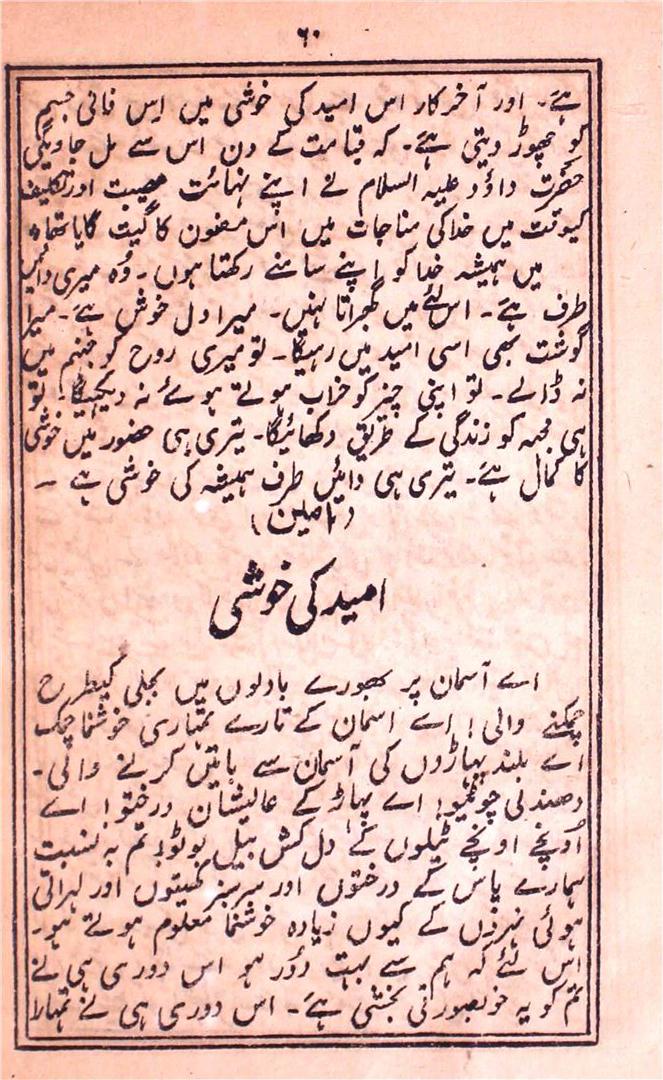 ٦٠
ہے۔ اور آخرکار اس امید کی خوشی میں اِس فانی جسم
کو چھوڑ دیتی ہے۔ کہ قیامت کے دن اس سے مل جاویگی
حضرت داؤد علیہ السلام نے اپنے نہائت مصیبت اور تکلیف
کیوقت میں خدا کی مناجات میں اس مضمون کا گیت گایا تھا۔
میں ہمیشہ خدا کو اپنے سامنے رکھتا ہوں۔ وُہ میری دائیں
طرف ہے۔ اس لئے میں گھبراتا نہیں۔ میرا دل خوش ہے۔ میرا
گوشت بھی اسی امید میں رہیگا۔ تو میری روح کو جہنم میں
نہ ڈالے۔ تو اپنی چیز کو خراب ہوتے ہوئے نہ دیکھیگا۔ تو
ہی مجھ کو زندگی کے طریق دکھائیگا۔ تیری ہی حضور میں خوشی
کا کمال ہے۔ تیری ہی دائیں طرف ہمیشہ کی خوشی ہے ۔
(آمین)
امید کی خوشی
اے آسمان پر بھورے بادلوں میں بجلی کیطرح
چمکنے والی! اے اسمان کے تارے تمہاری خوشنما چمک
اے بلند پہاڑوں کی آسمان سے باتیں کرنے والی۔
دھندلی چوٹیو! اے پہاڑ کے عالیشان درختو! اے
اُونچے اونچے ٹیلوں کے دل کش بیل بوٹو! تم بہ نسبت
ہمارے پاس کے درختوں اور سرسبز کھیتوں اور لہراتی
ہوئی نہروں کے کیوں زیادہ خوشنما معلوم ہوتے ہو۔
اس لئے کہ ہم سے بہت دُور ہو اس دوری ہی نے
تم کو یہ خوبصورتی بخشی ہے۔ اس دوری ہی نے تمہارا